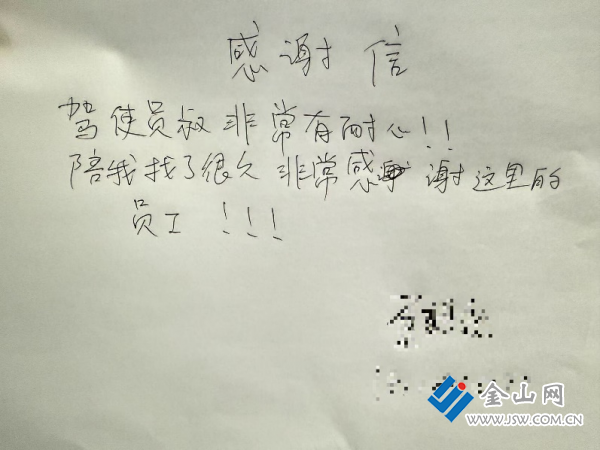 感谢信
驾使员叔非常有耐心!!
陪我找了很久非常感谢这里的
员工!!!
金山网
WWW.JSW.COM.CN